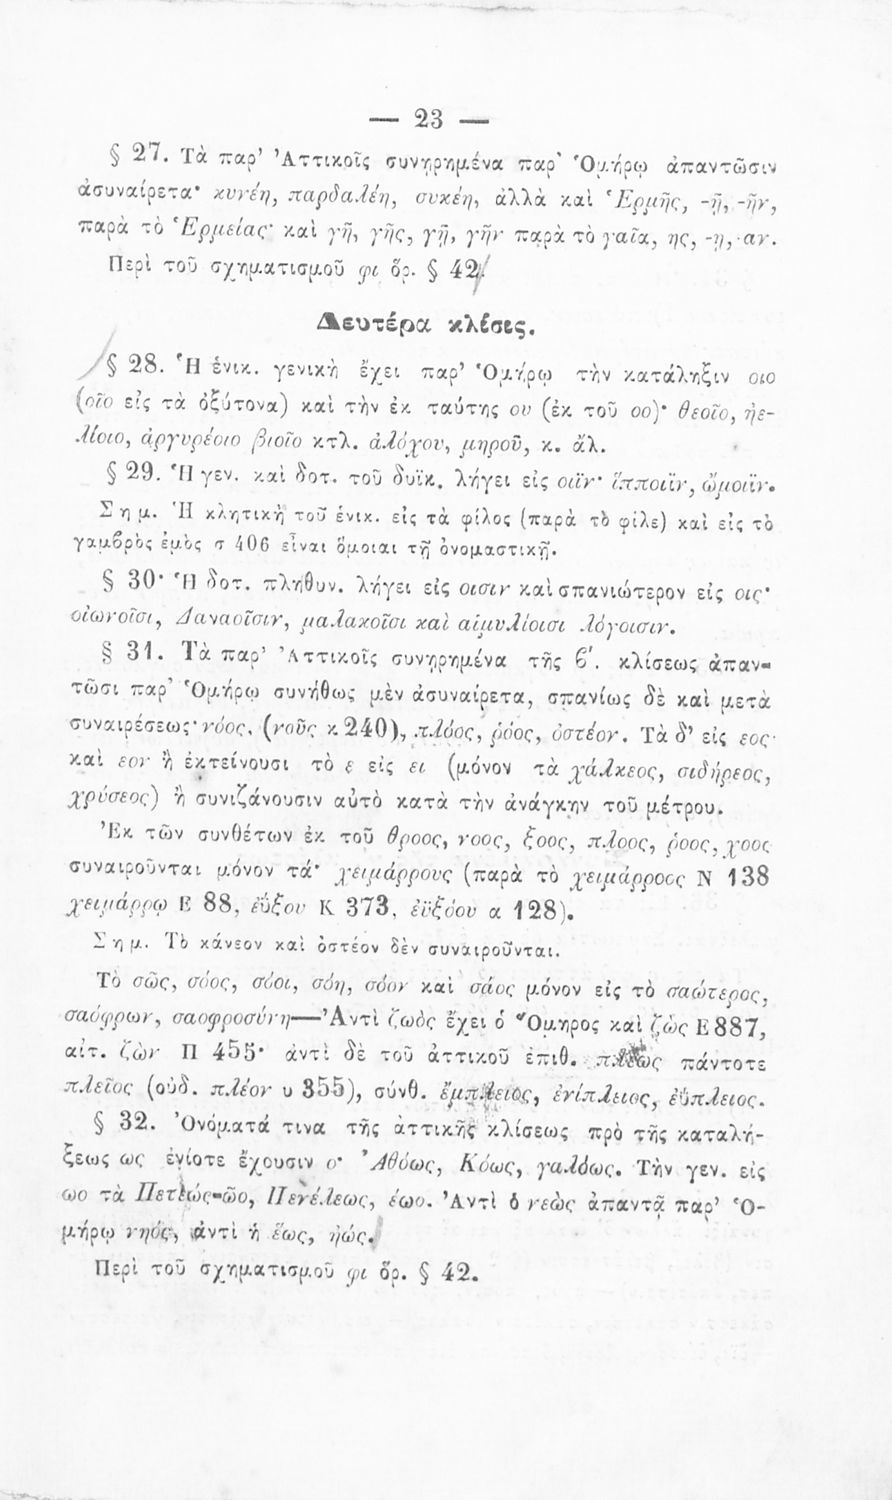 — 23 —
§ 27. Τὰ παρ' Ἀττικοῖς συνῃρημένα παρ' Ὁμήρῳ ἀπαντῶσιν
ἀσυναίρετα· κυνέη, παρδαλέη, συκέη, ἀλλὰ καὶ Ἑρμῆς, -ῇ, -ῆν,
παρὰ τὸ Ἑρμείας· καὶ γῆ, γῆς, γῇ, γῆν παρὰ τὸ γαῖα, ης, -ῃ, -αν.
Περὶ τοῦ σχηματισμοῦ φι ὅρ. § 42.
Δευτέρα κλίσις.
§ 28. Ἡ ἑνικ. γενικὴ ἔχει παρ' Ὁμήρῳ τὴν κατάληξιν οιο
(οῖο εἰς τὰ ὀξύτονα) καὶ τὴν ἐκ ταύτης ου (ἐκ τοῦ οο)· θεοῖο, ἠε-
λίοιο, ἀργυρέοιο βιοῖο κτλ. ἀλόχου, μηροῦ, κ. ἄλ.
§ 29. Ἡ γεν. καὶ δοτ. τοῦ δυϊκ. λήγει εἰς οιϊν· ἵπποιϊν, ὤμοιϊν.
Σημ. Ἡ κλητικὴ τοῦ ἑνικ. εἰς τὰ φίλος (παρὰ τὸ φίλε) καὶ εἰς τὸ
γαμβρὸς ἐμὸς τ 406 εἶναι ὅμοιαι τῇ ὀνομαστικῇ.
§ 30· Ἡ δοτ. πληθυν. λήγει εἰς οισιν καὶ σπανιώτερον εἰς οις·
οἰωνοῖσι, Δαναοῖσιν, μαλακοῖσι καὶ αἱμυλίοισι λόγοισιν.
§ 31. Τὰ παρ' Ἀττικοῖς συνῃρημένα τῆς β'. κλίσεως ἀπαν-
τῶσι παρ' Ὁμήρῳ συνήθως μὲν ἀσυναίρετα, σπανίως δὲ καὶ μετὰ
συναιρέσεως· νόος, (νοῦς κ 240), πλόος, ῥόος, ὀστέον. Τὰ δ' εἰς εος
καὶ εον ἢ ἐκτείνουσι τὸ ε εἰς ει (μόνον τὰ χάλκεος, σιδήρεος,
χρύσεος) ἢ συνιζάνουσιν αὐτὸ κατὰ τὴν ἀνάγκην τοῦ μέτρου.
Ἐκ τῶν συνθέτων ἐκ τοῦ θροος, νοος, ξοος, πλοος, ῥοος, χοος
συναιροῦνται μόνον τά· χειμάρρους (παρὰ τὸ χειμάρροος Ν 138
χειμάρρῳ Ε 88, ἐΰξου Κ 373, ἐϋξόου α 128).
Σημ. Τὸ κάνεον καὶ ὀστέον δὲν συναιροῦνται.
Τὸ σῶς, σόος, σόοι, σόη, σόον καὶ σάος μόνον εἰς τὸ σαώτερος,
σαόφρων, σαοφροσύνη—Ἀντὶ ζωὸς ἔχει ὁ Ὅμηρος καὶ ζὼς Ε 887,
αἰτ. ζὼν Π 455· ἀντὶ δὲ τοῦ ἀττικοῦ ἐπιθ. πλέως πάντοτε
πλεῖος (οὐδ. πλέον υ 355), σύνθ. ἔμπλειος, ἐνίπλειος, ἐΰπλειος.
§ 32. Ὀνόματά τινα τῆς ἀττικῆς κλίσεως πρὸ τῆς καταλή-
ξεως ως ἐνίοτε ἔχουσιν ο· Ἀθόως, Κόως, γαλόως. Τὴν γεν. εἰς
ωο τὰ Πετεώς-ῶο, Πενέλεως, έωο. Ἀντὶ ὁ νεὼς ἀπαντᾷ παρ' Ὁ-
μήρῳ νηός, ἀντὶ ἡ ἕως, ἠώς.
Περὶ τοῦ σχηματισμοῦ φι ὅρ. § 42.